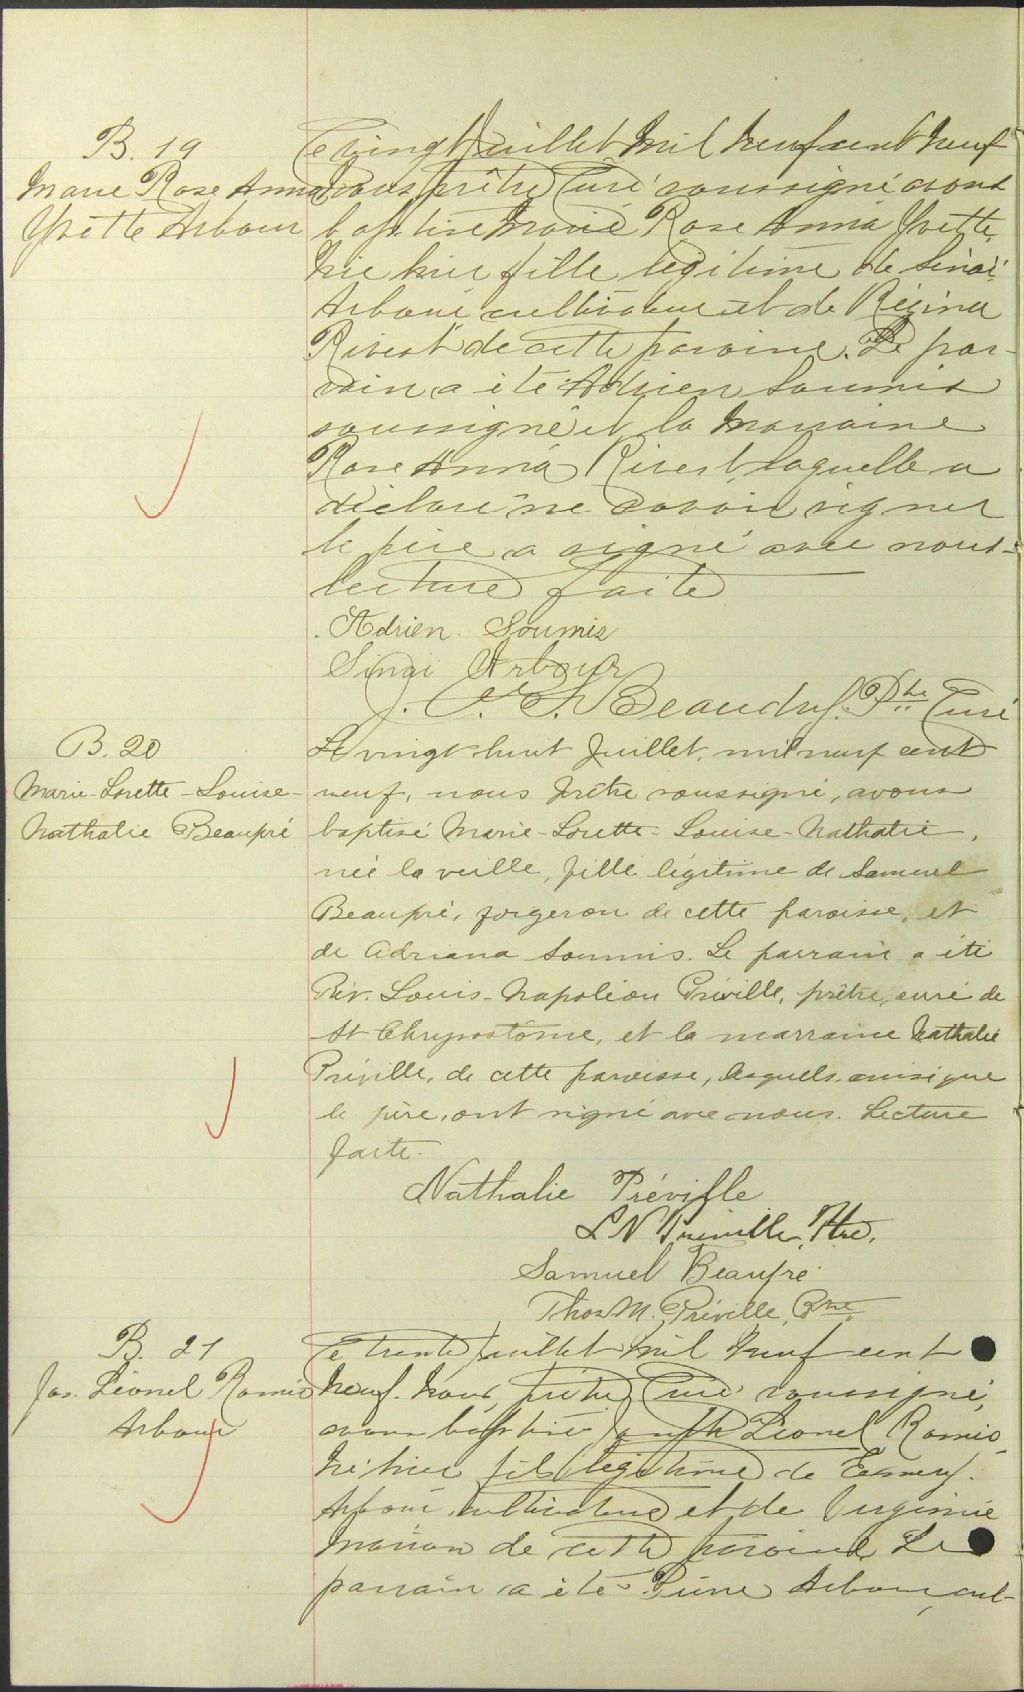 B. 19
Marie Rose Anna
Yvette Arbour
Le vingt Juillet Mil neuf cent neuf
nous prêtre Curé soussigné avons
baptisé Marie Rose Anna Yvette
née hier fille légitime de Sinaï
Arbour cultivateur et de Régina
Rivest de cette paroisse. Le par-
rain a été Adrien Soumis
soussigné et la Marraine
Rose Anna Rivest laquelle a
déclaré ne savoir signer
le père a signé avec nous-
lecture faite
Adrien Soumis
Sinai Arbour
J. Beaudry. Ptre Curé
B. 20
Marie-Lorette-Louise-
Nathalie Beaupré
Le vingt-huit Juillet, mil neuf cent
neuf, nous prêtre soussigné, avons
baptisé Marie-Lorette-Louise-Nathalie,
née la veille, fille légitime de Samuel
Beaupré, forgeron de cette paroisse, et
de Adriana Soumis. Le parrain a été
Rév. Louis-Napoléon Préville, prêtre, curé de
St Chrysostôme, et la marraine Nathalie
Préville, de cette paroisse, lesquels ainsi que
le père, ont signé avec nous. Lecture
faite.
Nathalie Préville
L N Préville, Ptre.
Samuel Beaupré
Thos M. Préville, Ptre
B. 21
Jos. Léonel Roméo
Arbour
Le trente Juillet Mil Neuf cent
Neuf. Nous, prêtre Curé soussigné,
avons baptisé Joseph Léonel Roméo,
né hier fils légitime de
Arbour cultivateur et de Virginie
Marion de cette paroisse Le
parrain a été Pierre Arbour, cul-